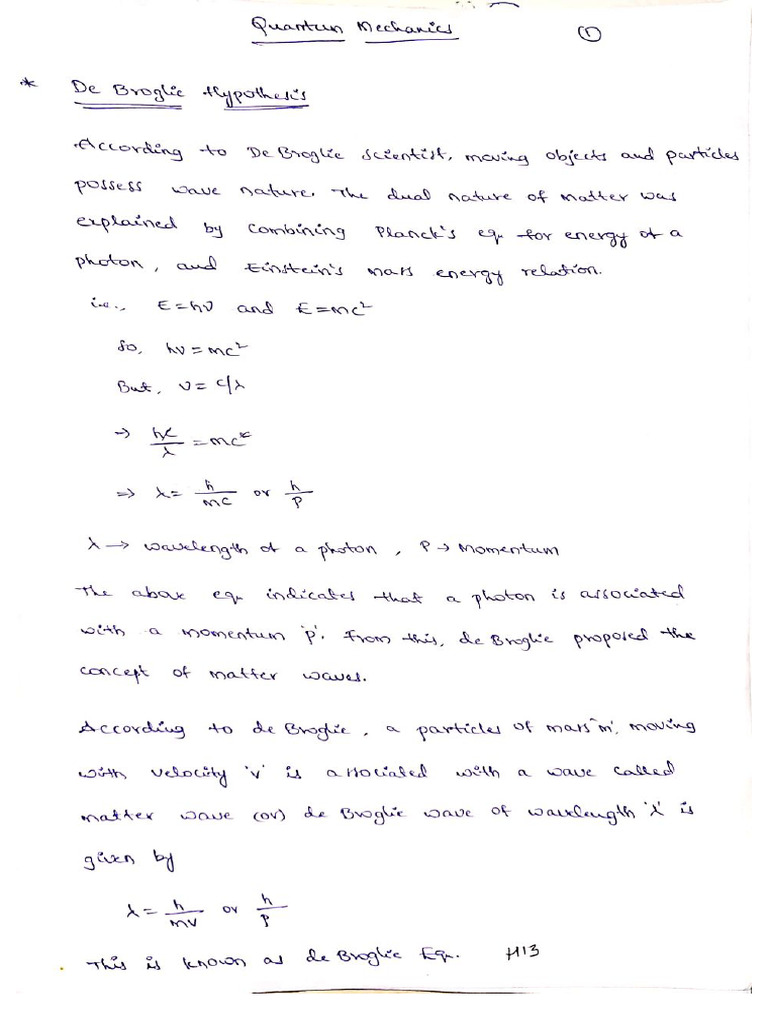 Quantum Mechanics ①
* De Broglie Hypothesis
According to De Broglie scientist, moving objects and particles
possess wave nature. The dual nature of matter was
explained by combining Planck's eqn for energy of a
photon, and Einstein's mass energy relation.
i.e., E=hν and E=mc²
So, hν=mc²
But, ν=c/λ
→ hc/λ = mc²
⇒ λ= h/mc or h/p
λ → wavelength of a photon, P → Momentum
The above eqn indicates that a photon is associated
with a momentum 'p'. From this, de Broglie proposed the
concept of matter waves.
According to de Broglie, a particles of mass 'm', moving
with velocity 'v' is associated with a wave called
matter wave (or) de Broglie wave of wavelength 'λ' is
given by
λ = h/mv or h/p
This is known as de Broglie Eqn. H13